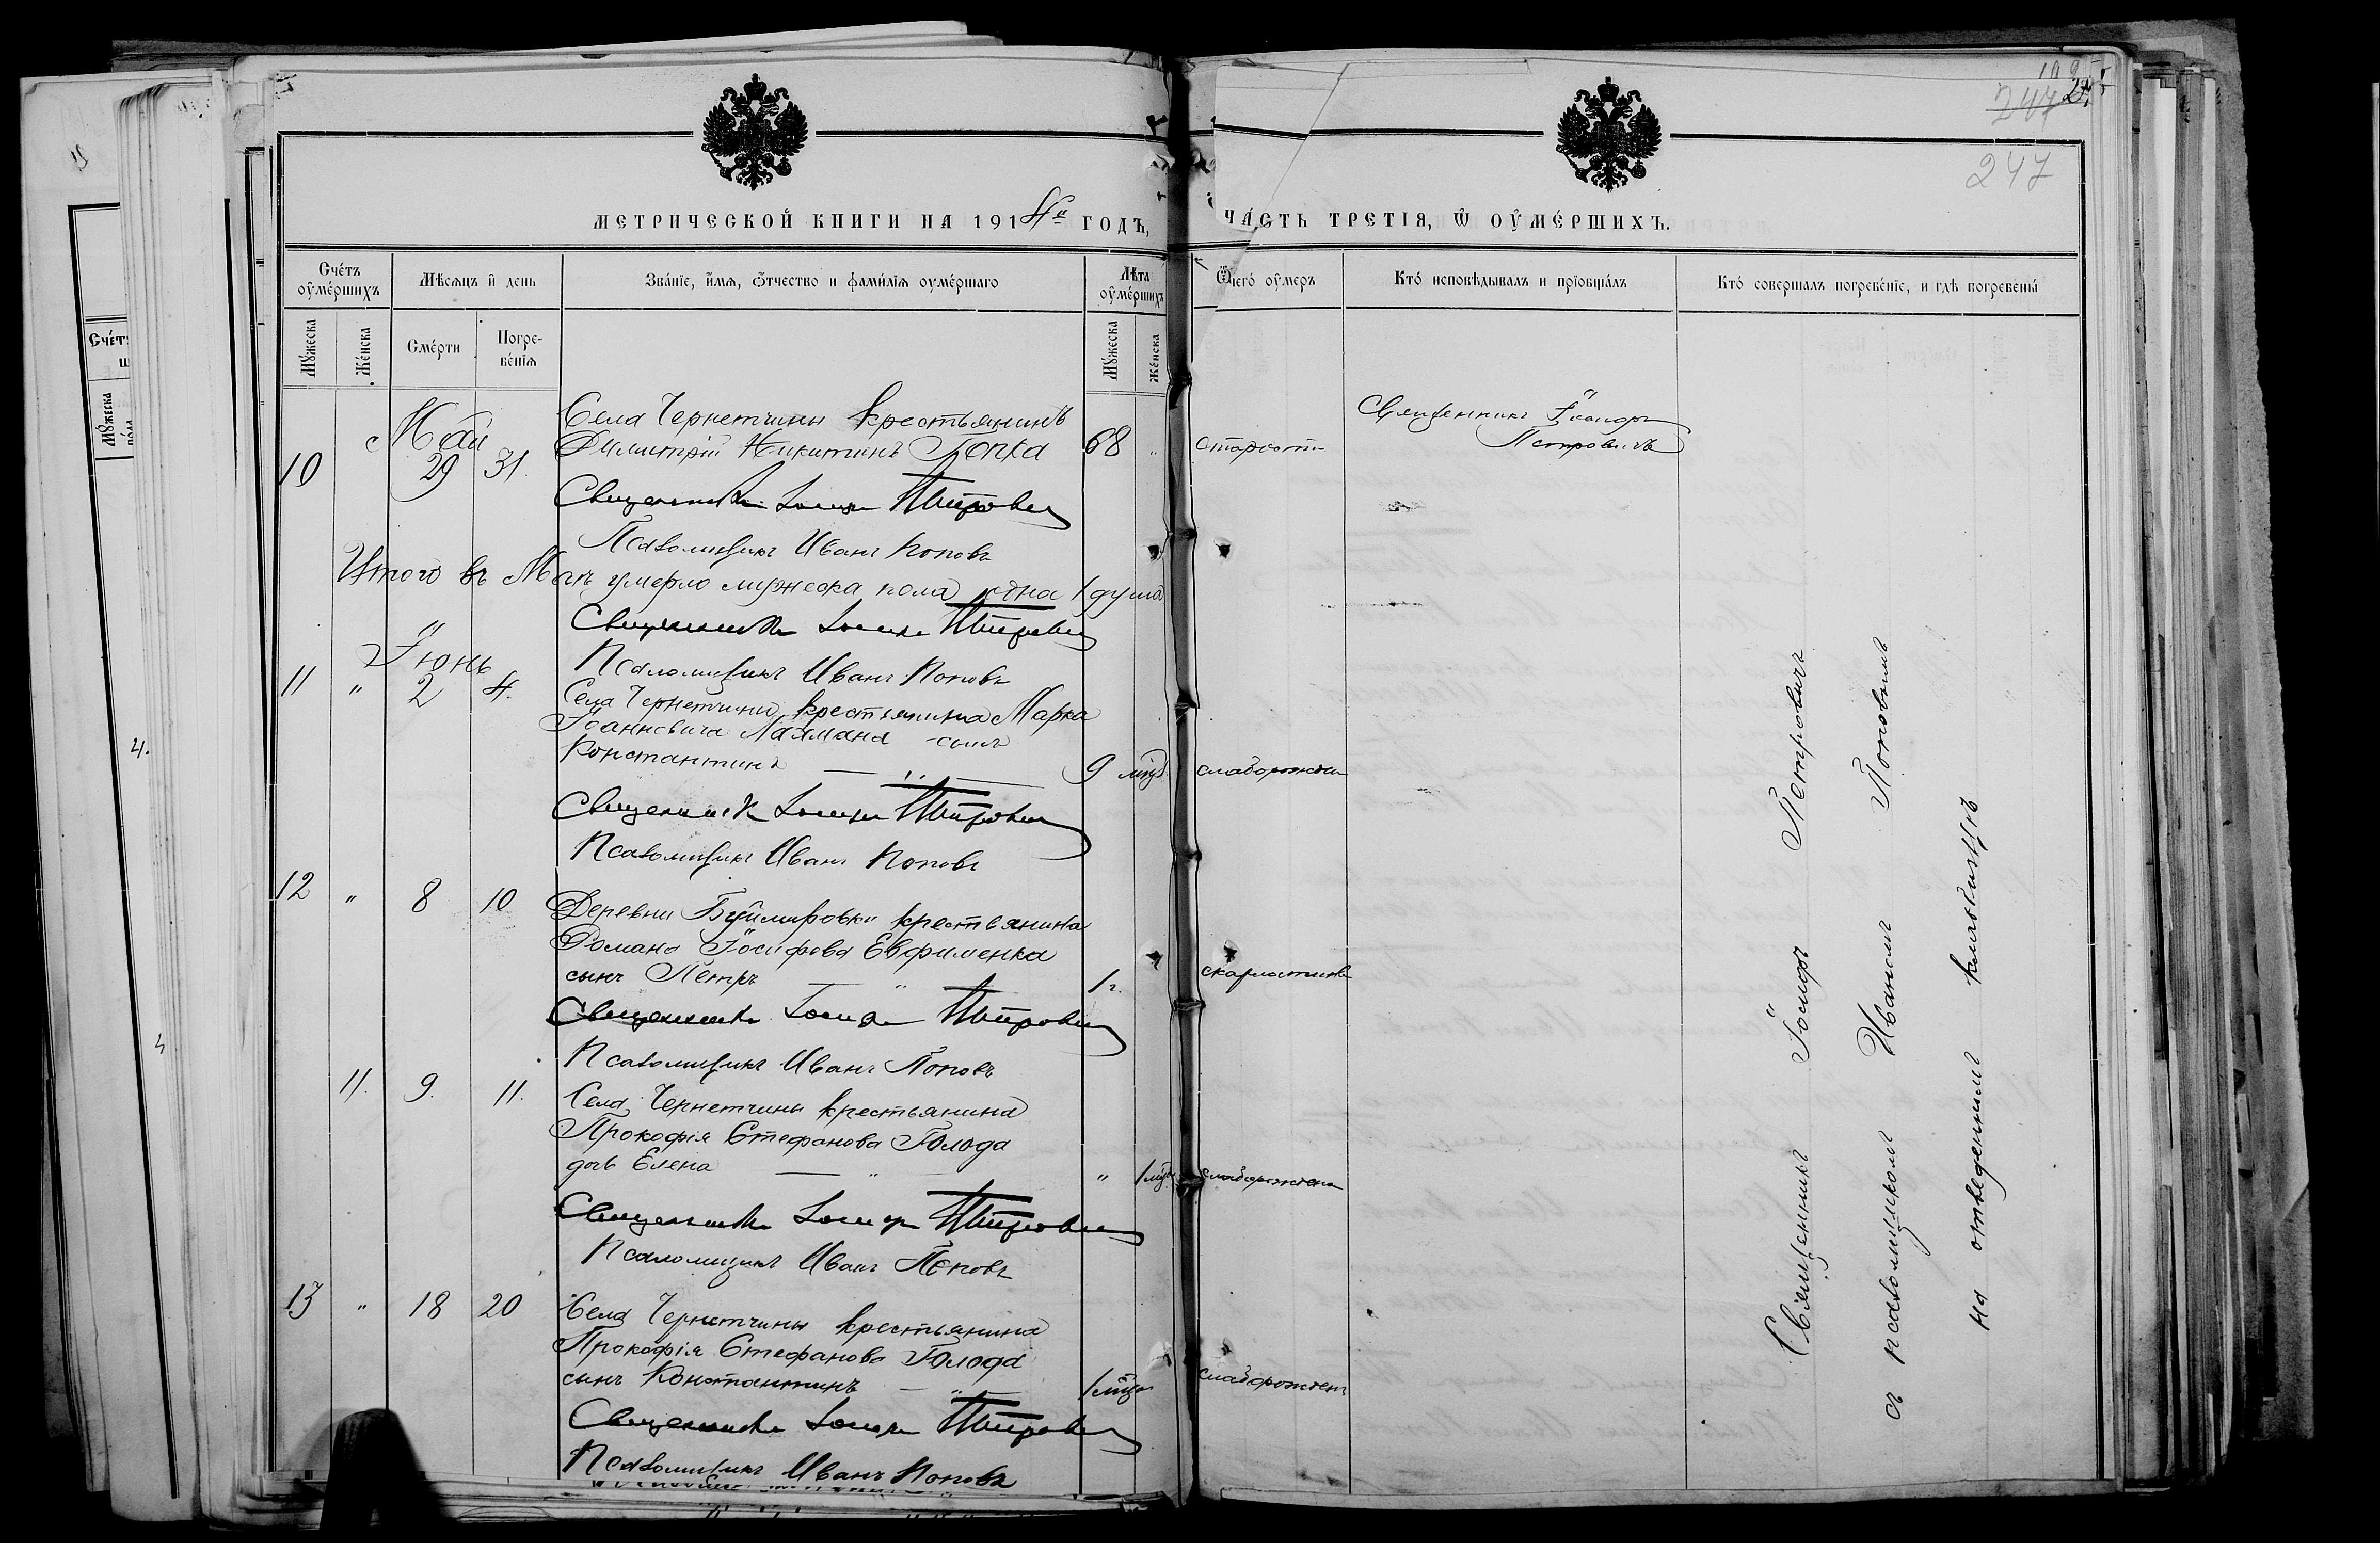 МЕТРИЧЕСКОЙ КНИГИ НА 1914й ГОДЪ,
Счетъ оумершихъ
Мѣсяцъ и день
Званіе, имя, отчество и фамилія оумершаго
Лѣта оумершихъ
Мужеска
Женска
Смерти
Погребенія
Мужеска
Женска
Май
10 29 31.
Села Чернетчины крестьянинъ
Димитрій Никитинъ Гопка 68 "
Священникъ Іосифъ Петровичъ
Псаломщикъ Иванъ Поповъ
Итого въ Маѣ умерло мужеска пола одна 1 душа
Священникъ Іосифъ Петровичъ
Псаломщикъ Иванъ Поповъ
Іюнь
11 " 2 4.
Села Чернетчины крестьянина Марка
Іоанновича сынъ
Константинъ — " — 9 мѣс.
Священникъ Іосифъ Петровичъ
Псаломщикъ Иванъ Поповъ
12 " 8 10
Деревни Буймировки крестьянина
Романа Іосифова Евфименка
сынъ Петръ " 1 г.
Священникъ Іосифъ Петровичъ
Псаломщикъ Иванъ Поповъ
11. 9. 11.
Села Чернетчины крестьянина
Прокофія Стефанова Голода
дочь Елена — " — " 1 мѣс.
Священникъ Іосифъ Петровичъ
Псаломщикъ Иванъ Поповъ
13 " 18 20
Села Чернетчины крестьянина
Прокофія Стефанова Голода
сынъ Константинъ — " 1 мѣс.
Священникъ Іосифъ Петровичъ
Псаломщикъ Иванъ Поповъ
247
247
ЧАСТЬ ТРЕТІЯ, Ѿ ОУМЕРШИХЪ.
Ѿчего оумеръ
Кто исповѣдывалъ и пріобщалъ
Кто совершалъ погребеніе, и гдѣ погребены
старости
Священникъ Іосифъ
Петровичъ
слаборожден
скарлатина
слаборождена
слаборожден
Священникъ Іосифъ Петровичъ
съ псаломщикомъ Иваномъ Поповымъ
на отведенномъ кладбищѣ
Счет
Мужеска
пола
4.